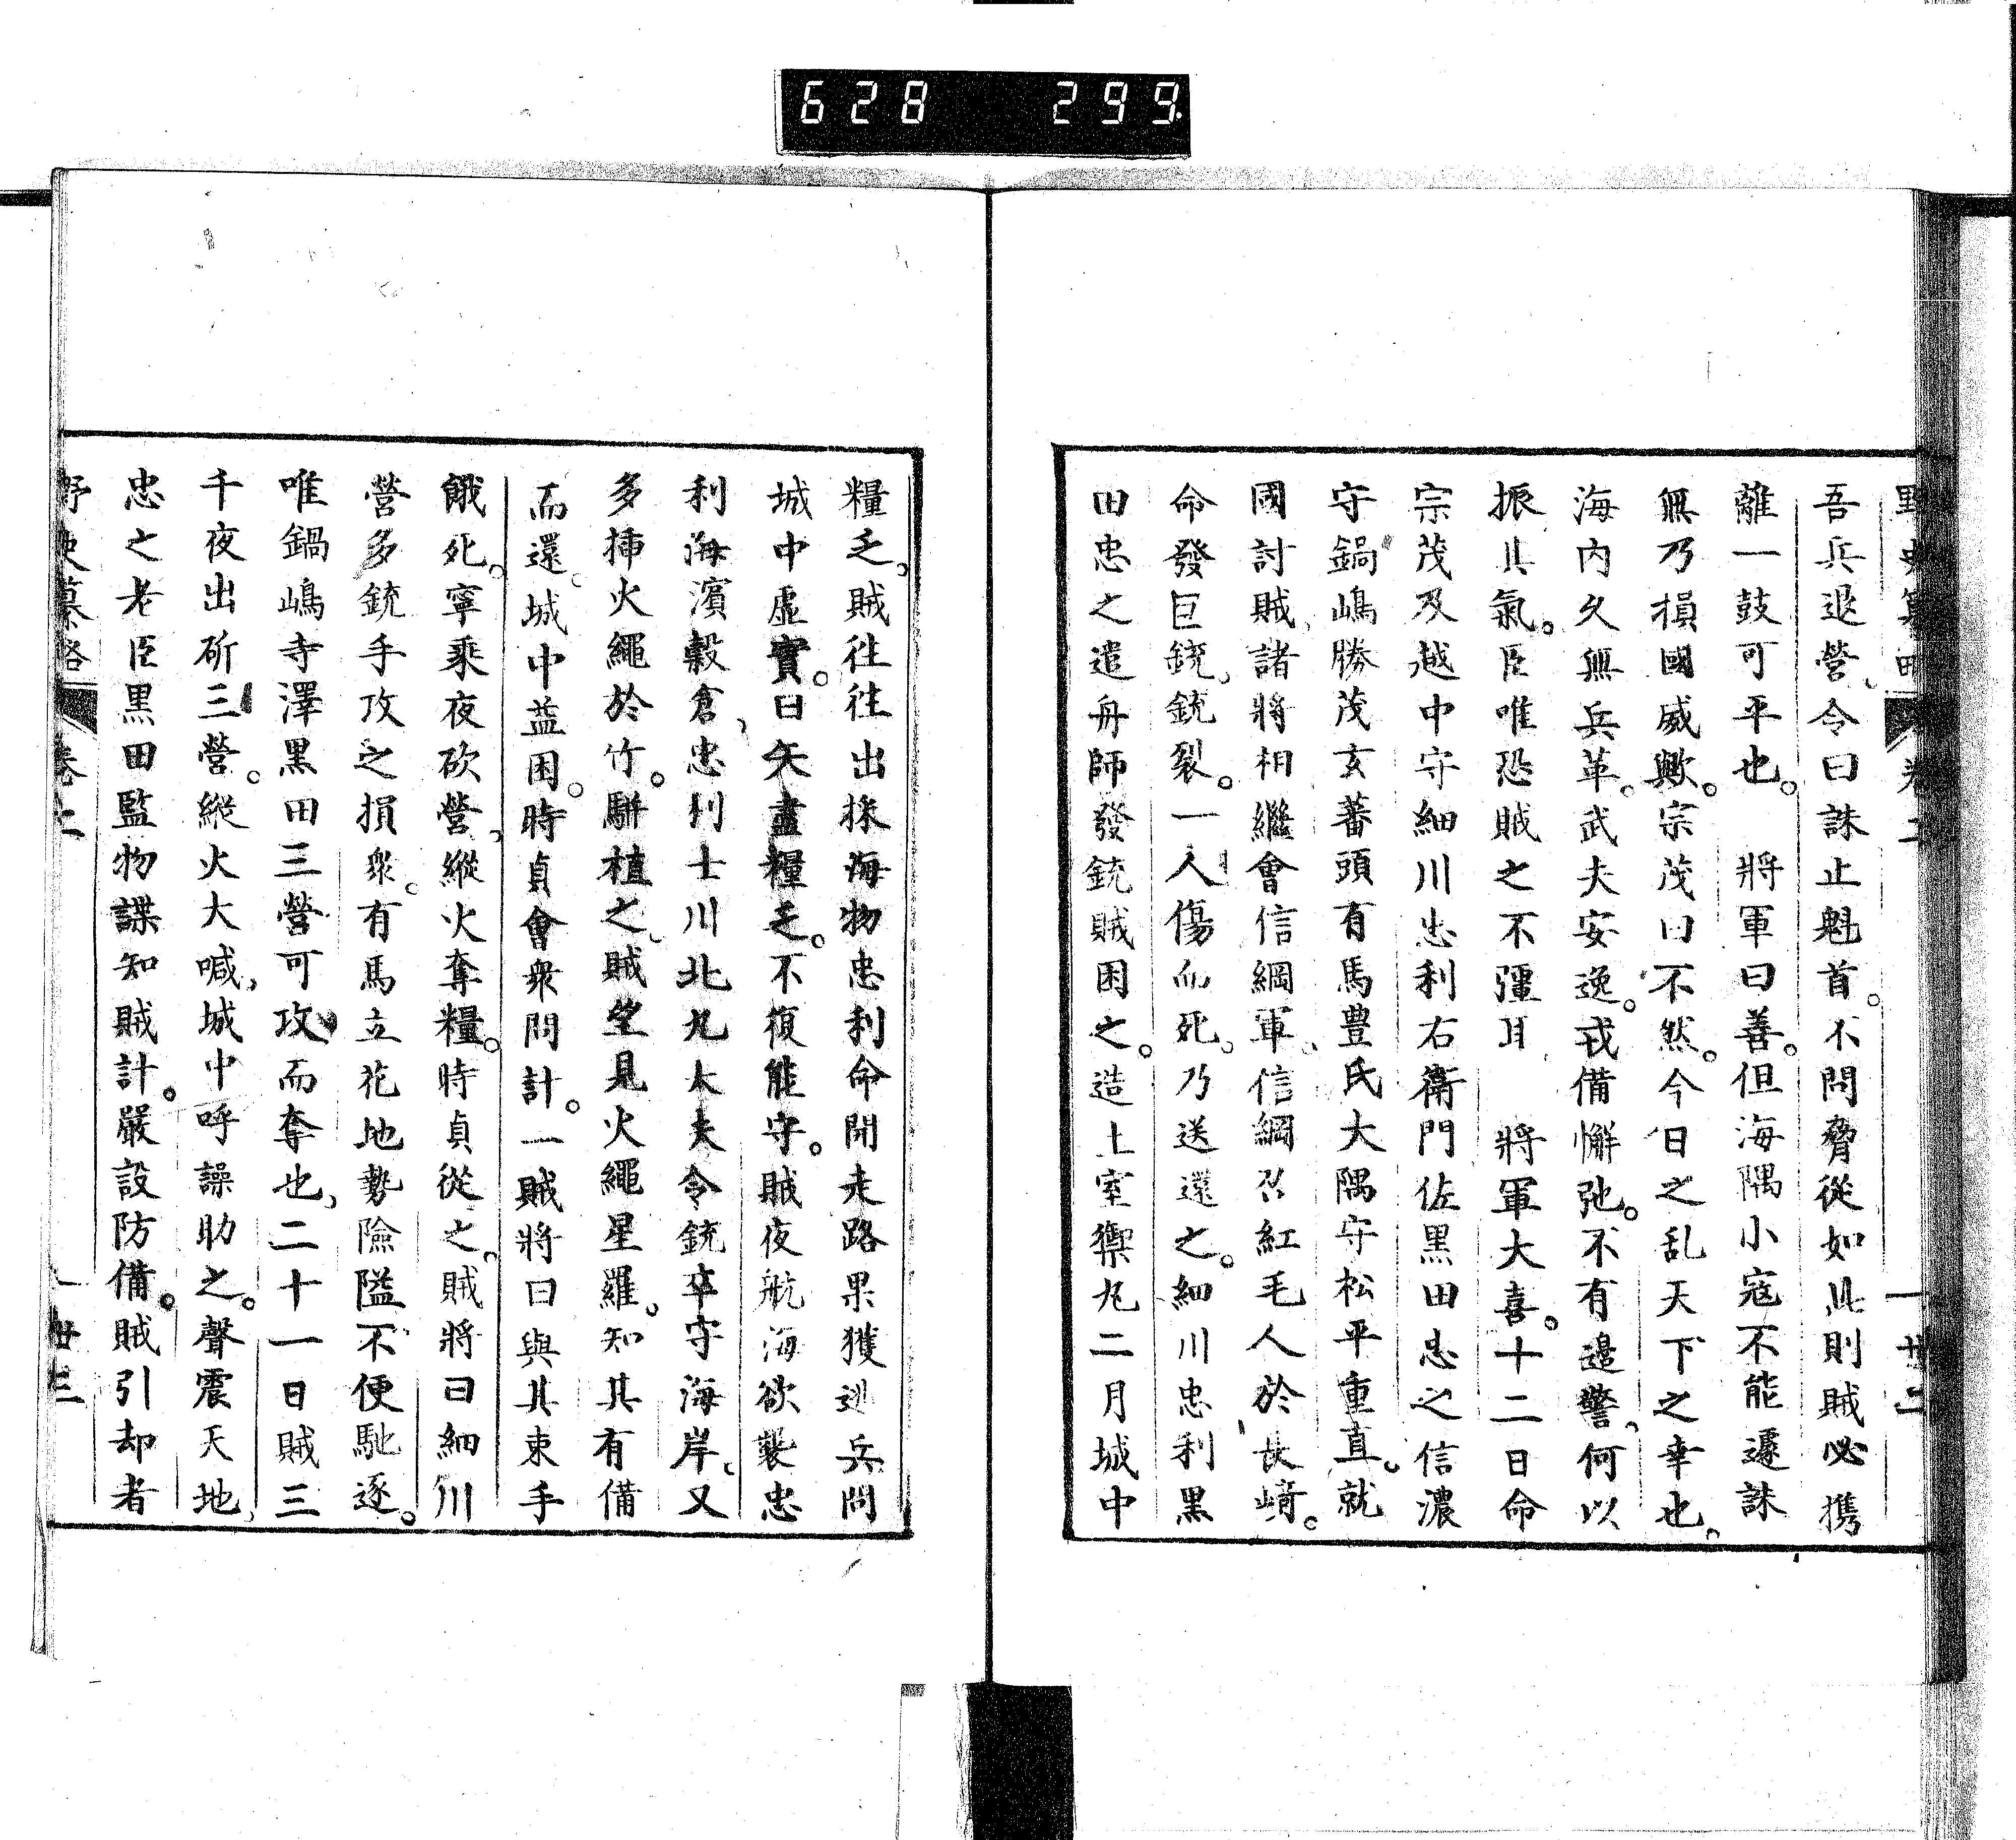 628 299
野史纂略 卷二 廿二
吾兵退營、令曰誅止魁首。不問脅從如此則賊必携
離一鼓可平也。 將軍曰善。但海隅小寇不能遽誅
無乃損國威歟。宗茂曰不然。今日之乱天下之幸也。
海内久無兵革。武夫安逸。戎備懈弛。不有邉警、何以
振其氣。臣唯恐賊之不彊耳 將軍大喜。十二日命
宗茂及越中守細川忠利右衛門佐黒田忠之信濃
守鍋嶋勝茂玄蕃頭有馬豊氏大隅守松平重直。就
國討賊、諸將相繼會信綱軍、信綱召紅毛人於長﨑。
命發巨銃、銃裂。一人傷而死。乃送還之。細川忠利黒
田忠之遣舟師發銃賊困之。造土室禦丸二月城中
糧乏。賊徃徃出採海物忠利命開走路果獲逊兵問
城中虚實。曰矢盡糧乏。不復能守。賊夜航海欲襲忠
利海濱穀倉、忠利士川北九太夫令銃卒守海岸、又
多挿火繩於竹。駢植之、賊望見火繩星羅。知其有備
而還。城中益困。時貞會衆問計。一賊將曰與其束手
餓死。寧乘夜砍營、縱火奪糧。時貞從之。賊將曰細川
營多銃手攻之損衆。有馬立花地勢險隘不便馳逐。
唯鍋嶋寺澤黒田三營可攻而奪也、二十一日賊三
千夜出斫三營。縱火大喊、城中呼譟助之。聲震天地、
忠之老臣黒田監物諜知賊計。嚴設防備。賊引却者
野史纂略 卷二 廿三